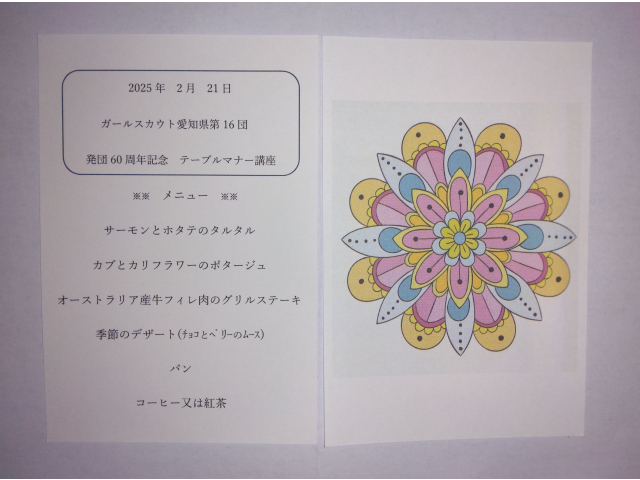 2025年 2月 21日
ガールスカウト愛知県第16団
発団60周年記念 テーブルマナー講座
※※ メニュー ※※
サーモンとホタテのタルタル
カブとカリフラワーのポタージュ
オーストラリア産牛フィレ肉のグリルステーキ
季節のデザート(ﾁｮｺとﾍﾞﾘｰのﾑｰｽ)
パン
コーヒー又は紅茶